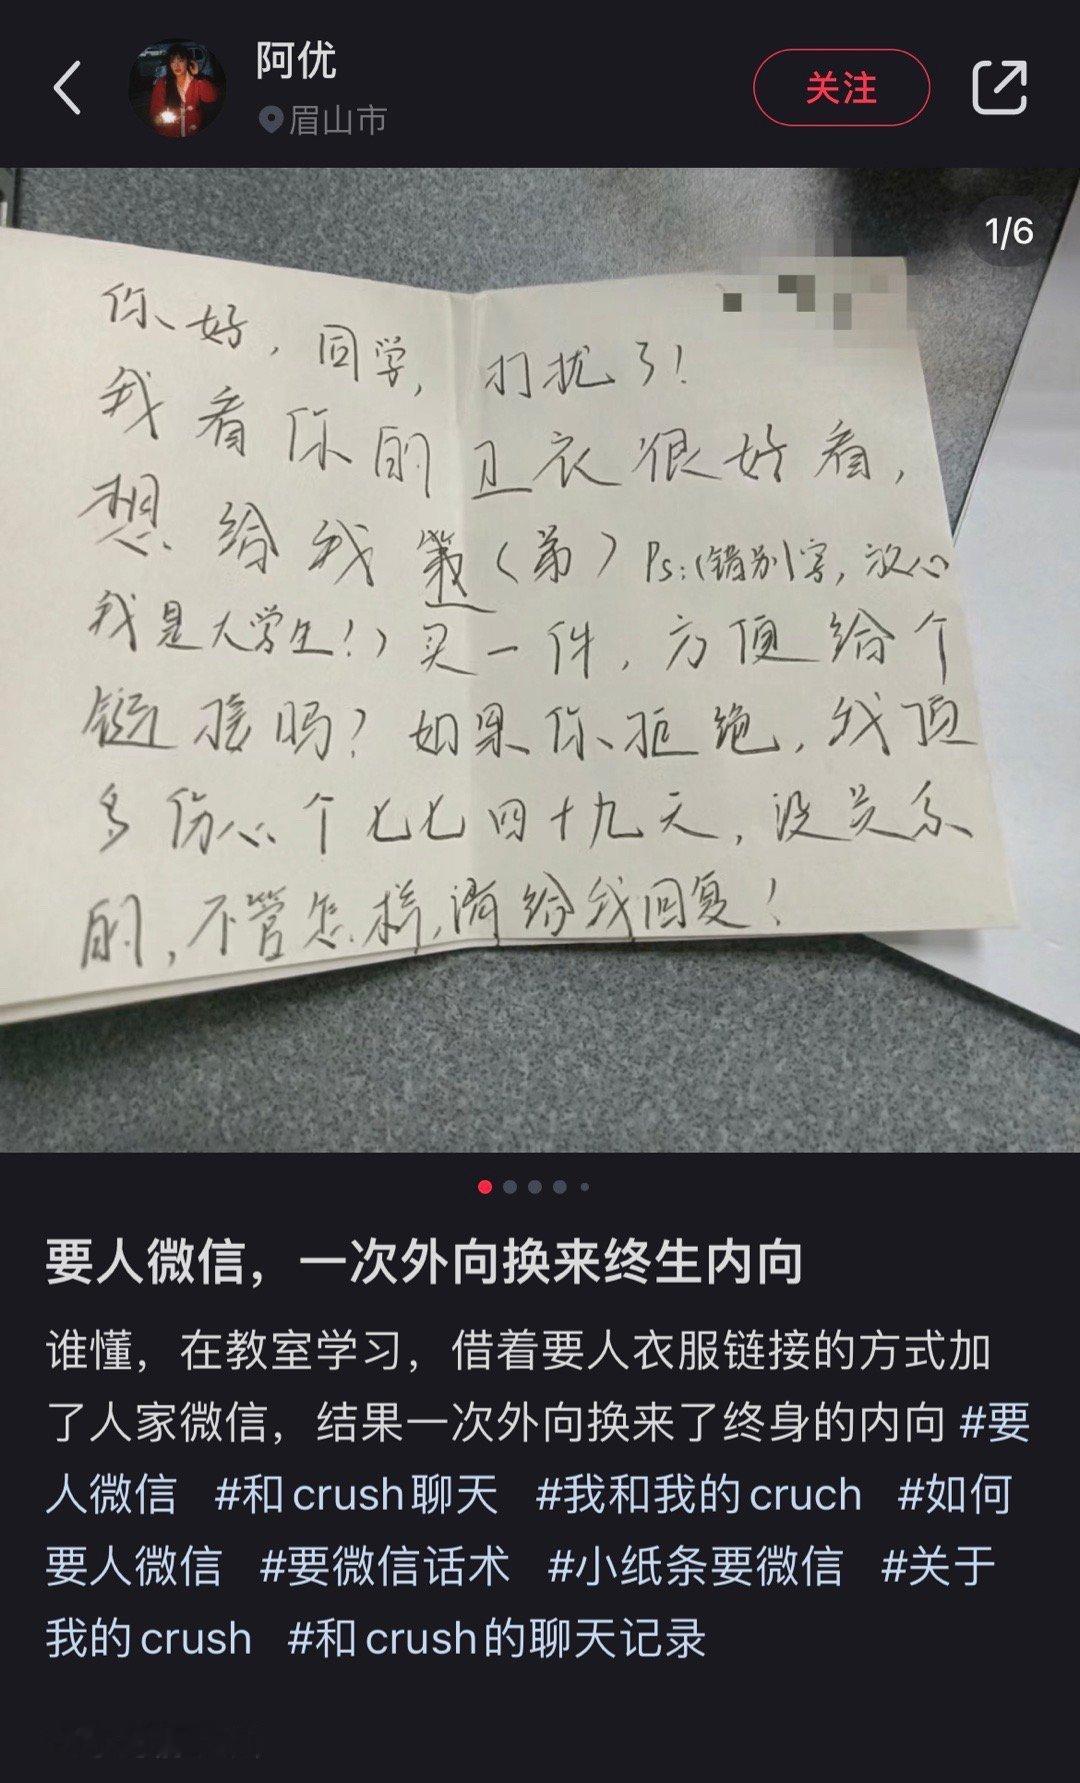 阿优
眉山市
关注
1/6
你好，同学，打扰了！
我看你的卫衣很好看，
想给我（弟）Ps:(错别字，放心
我是大学生！)买一件，方便给个
链接吗？如果你拒绝，我顶
多伤心个七七四十九天，没关系
的，不管怎样，请给我回复！
要人微信，一次外向换来终生内向
谁懂，在教室学习，借着要人衣服链接的方式加
了人家微信，结果一次外向换来了终身的内向 #要
人微信 #和crush聊天 #我和我的cruch #如何
要人微信 #要微信话术 #小纸条要微信 #关于
我的crush #和crush的聊天记录